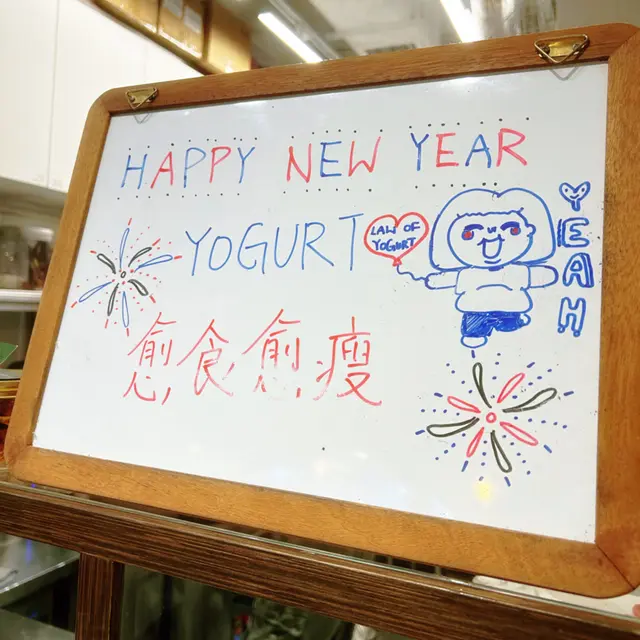 HAPPY NEW YEAR
YOGURT
LAW OF
YOGURT
YEAH
愈食愈瘦